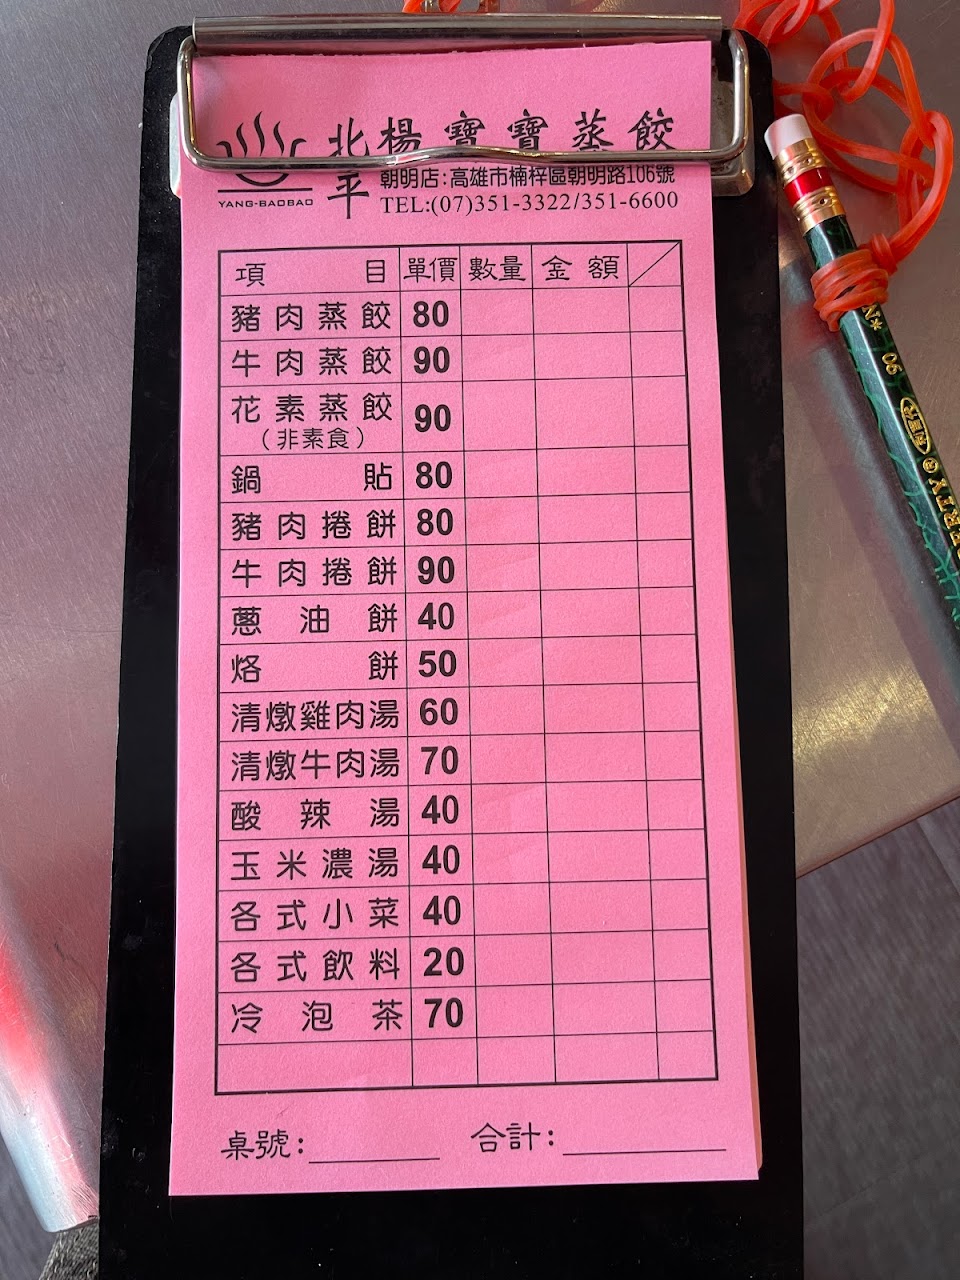 北平
楊寶寶蒸餃
YANG-BAOBAO
朝明店:高雄市楠梓區朝明路106號
TEL:(07)351-3322/351-6600
項目 單價 數量 金額
豬肉蒸餃 80
牛肉蒸餃 90
花素蒸餃 90
(非素食)
鍋貼 80
豬肉捲餅 80
牛肉捲餅 90
蔥油餅 40
烙餅 50
清燉雞肉湯 60
清燉牛肉湯 70
酸辣湯 40
玉米濃湯 40
各式小菜 40
各式飲料 20
冷泡茶 70
桌號: 合計:
90